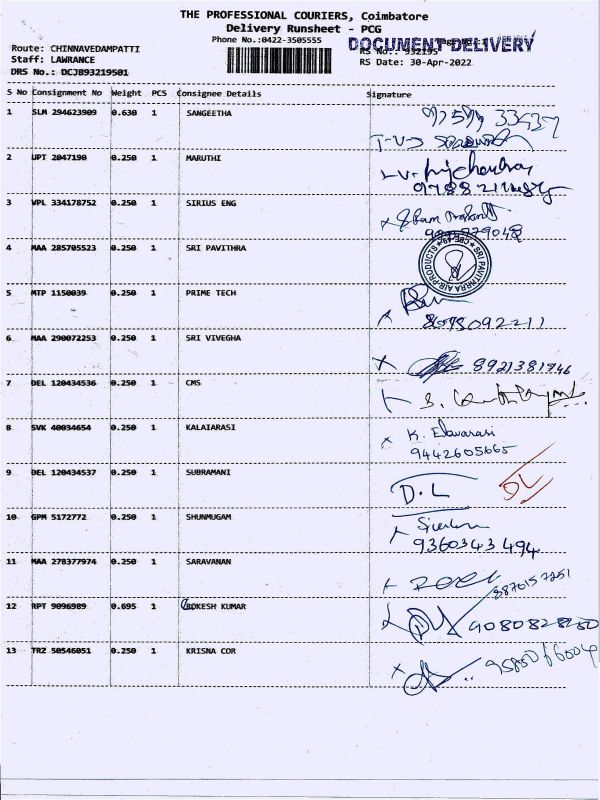 THE PROFESSIONAL COURIERS, Coimbatore
Delivery Runsheet - PCG
Phone No.:0422-3505555
DOCUMENT DELIVERY
Route: CHINNAVEDAMPATTI
Staff: LAWRANCE
RS No.: 952195
DRS No.: DCJB93219501
RS Date: 30-Apr-2022
S No Consignment No Weight PCS Consignee Details Signature
1 SLM 294623909 0.630 1 SANGEETHA
2 UPT 2047190 0.250 1 MARUTHI
3 VPL 334178752 0.250 1 SIRIUS ENG
4 MAA 285705523 0.250 1 SRI PAVITHRA
SRI PAVITHRA AIR PRODUCTS
5 MTP 1150039 0.250 1 PRIME TECH
6 MAA 290072253 0.250 1 SRI VIVEGHA 8921381746
7 DEL 120434536 0.250 1 CMS
8 SVK 40034654 0.250 1 KALAIARASI K. Elavarasi
9442605665
9 DEL 120434537 0.250 1 SUBRAMANI D.L DL
10 GPM 5172772 0.250 1 SHUNMUGAM
9360343494
11 MAA 278377974 0.250 1 SARAVANAN
12 RPT 9096989 0.695 1 ROKESH KUMAR 9080828250
13 TRZ 50546051 0.250 1 KRISNA COR